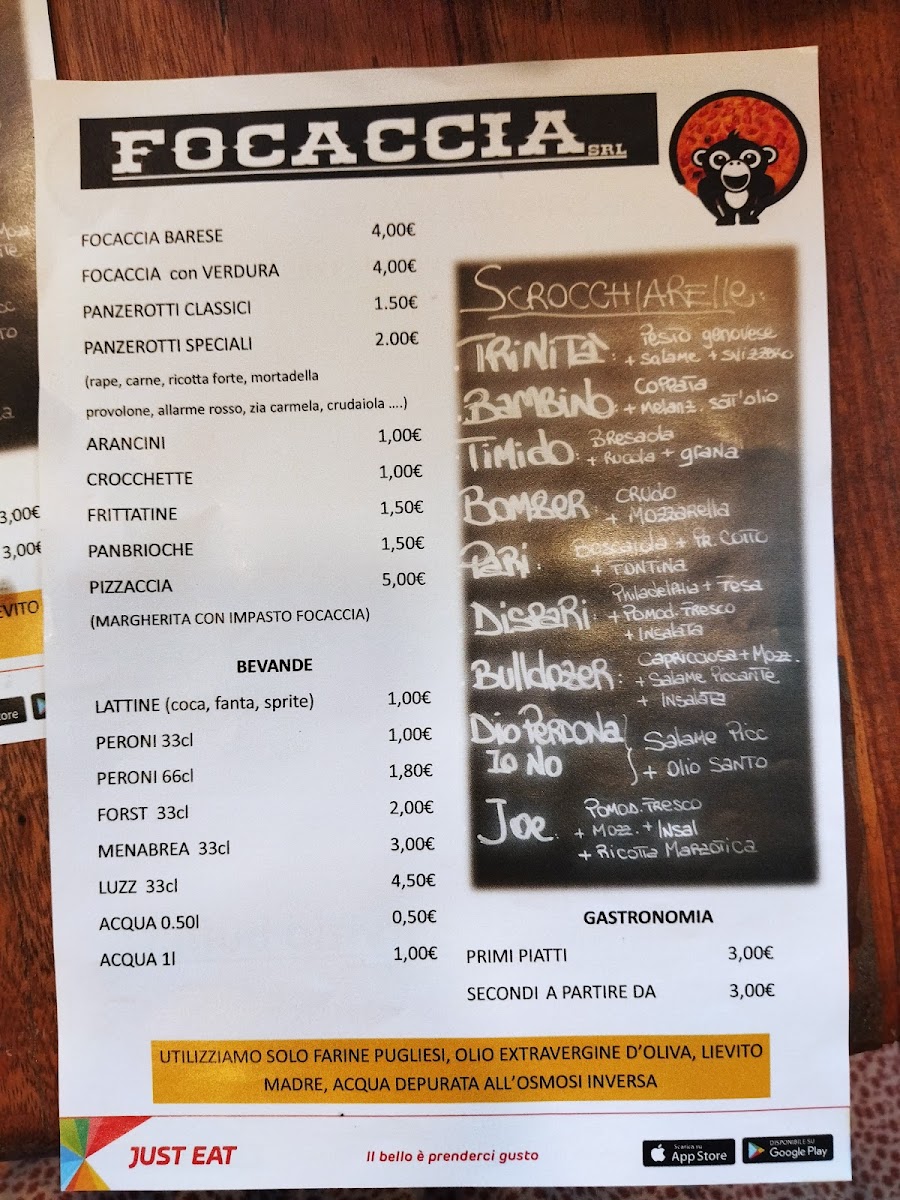 FOCACCIA SRL
FOCACCIA BARESE 4,00€
FOCACCIA con VERDURA 4,00€
PANZEROTTI CLASSICI 1.50€
PANZEROTTI SPECIALI 2.00€
(rape, carne, ricotta forte, mortadella
provolone, allarme rosso, zia carmela, crudaiola ....)
ARANCINI 1,00€
CROCCHETTE 1,00€
FRITTATINE 1,50€
PANBRIOCHE 1,50€
PIZZACCIA 5,00€
(MARGHERITA CON IMPASTO FOCACCIA)
BEVANDE
LATTINE (coca, fanta, sprite) 1,00€
PERONI 33cl 1,00€
PERONI 66cl 1,80€
FORST 33cl 2,00€
MENABREA 33cl 3,00€
LUZZ 33cl 4,50€
ACQUA 0.50l 0,50€
ACQUA 1l 1,00€
SCROCCHIARELLE:
TRINITÀ: Pesto genovese
+ Salame + SVIZZERO
BAMBINO: COPPATA
+ Melanz. SOTT'olio
TIMIDO: Bresaola
+ Rucola + grana
BOMBER: CRUDO
+ MOZZARELLA
PARI: Boscaiola + PR. COTTO
+ FONTINA
DISPARI: Philadelphia + Tesa
+ POMOD. FRESCO
+ INSALATA
Bulldozer: CAPRICCIOSA + MOZZ.
+ SALAME PICCANTE
+ INSALATA
DIO PERDONA
IO NO
Salame PICC
+ Olio SANTO
JOE: POMOD. FRESCO
+ MOZZ. + INSAL
+ RICOTTA MARZOTICA
GASTRONOMIA
PRIMI PIATTI 3,00€
SECONDI A PARTIRE DA 3,00€
UTILIZZIAMO SOLO FARINE PUGLIESI, OLIO EXTRAVERGINE D'OLIVA, LIEVITO
MADRE, ACQUA DEPURATA ALL'OSMOSI INVERSA
JUST EAT
Il bello è prenderci gusto
Scarica su
App Store
DISPONIBILE SU
Google Play
3,00€
3,00€